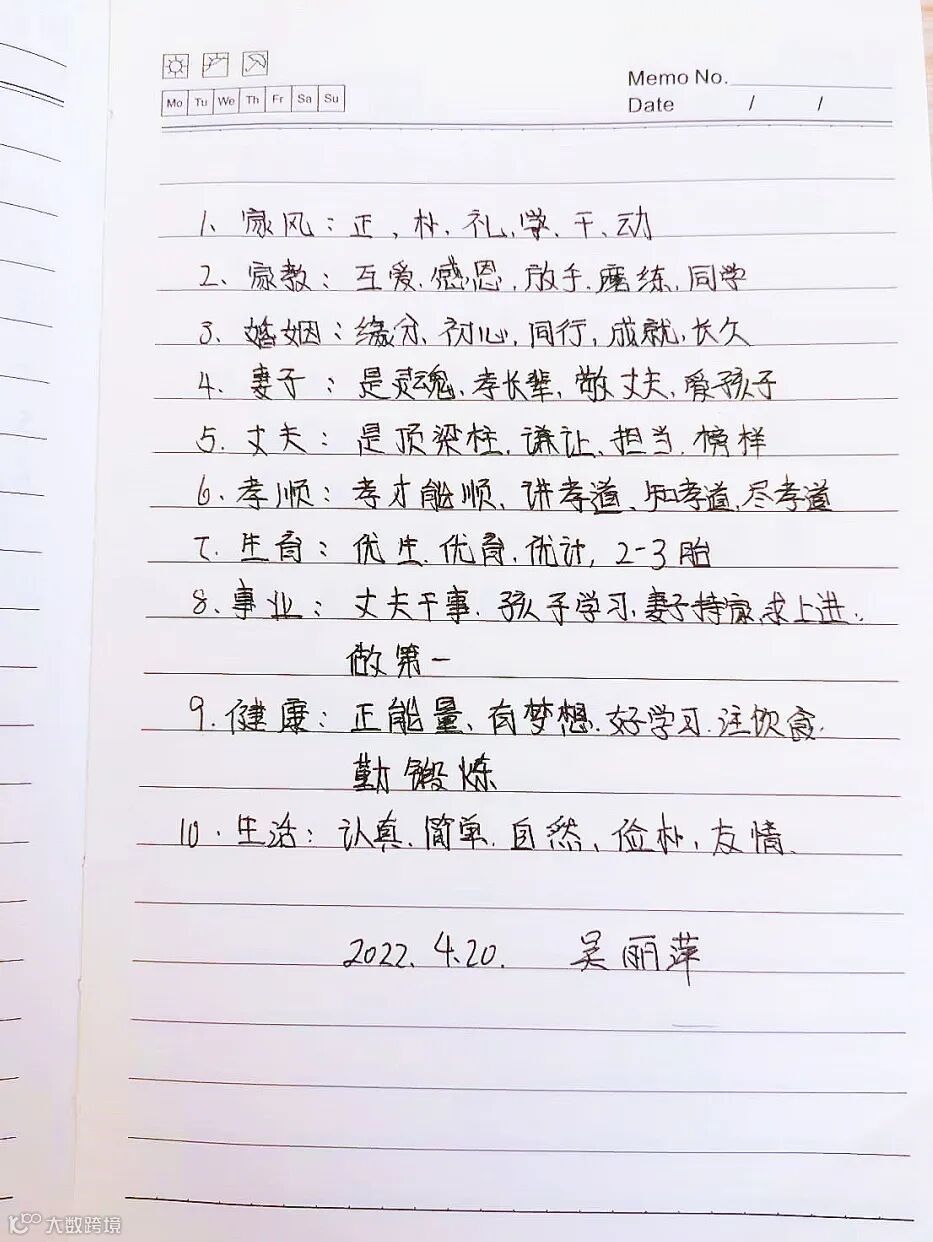 Memo No.
Mo Tu We Th Fr Sa Su
Date / /
1、家风：正、朴、礼、学、干、动
2、家教：互爱、感恩、放手、磨练、同学
3、婚姻：缘分、初心、同行、成就、长久
4、妻子：是灵魂、孝长辈、敬丈夫、爱孩子
5、丈夫：是顶梁柱、谦让、担当、榜样
6、孝顺：孝才能顺、讲孝道、知孝道、尽孝道
7、生育：优生、优育、优计，2-3胎
8、事业：丈夫干事、孩子学习、妻子持家、求上进、
做第一
9、健康：正能量、有梦想、好学习、注饮食、
勤锻炼
10、生活：认真、简单、自然、俭朴、友情、
2022.4.20. 吴丽萍
大数跨境